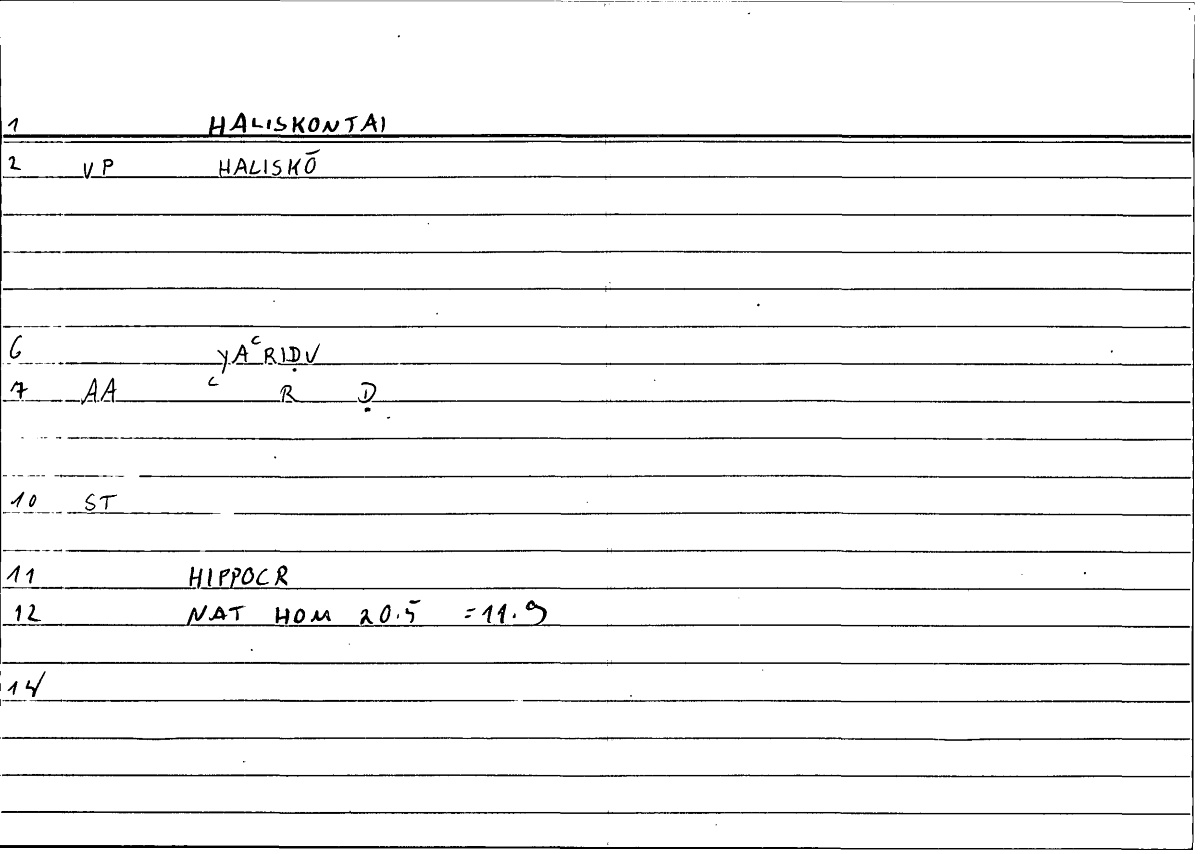 1 HALISKONTAI
2 VP HALISKŌ
6 yAʿRIḌV
7 AA ʿ R Ḍ
10 ST
11 HIPPOCR
12 NAT HOM 20.5 =11.9
14